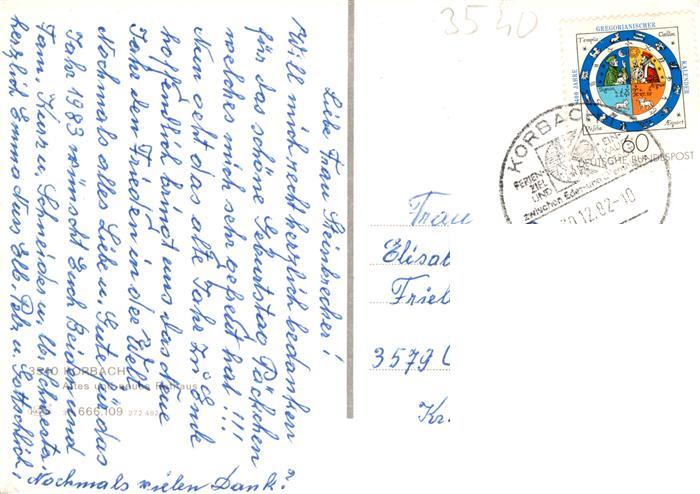 Liebe Frau Steinbrecher!
Will mich recht herzlich bedanken
für das schöne Geburtstag Päckchen
welches mich sehr gefreut hat!!!
Nun geht das alte Jahr zu Ende
hoffendlich bringt uns das Neue
Jahr den Frieden in der Welt.
Nochmals alles Liebe u. Gute für das
Jahr 1983 wünscht Euch Beiden und
Fam. Kurz u. Schneider u.
herzlich Emma
Nochmals vielen Dank!
3540 KORBACH
Altes und neues Rathaus
666.109 272 492
3540
GREGORIANISCHER
KALENDER
400 JAHRE
60
DEUTSCHE BUNDESPOST
KORBACH
FERIEN-
ZIEL
zwischen Eder- und
30.12.82-10
Frau
Elisab
Friel
3579
Kr.